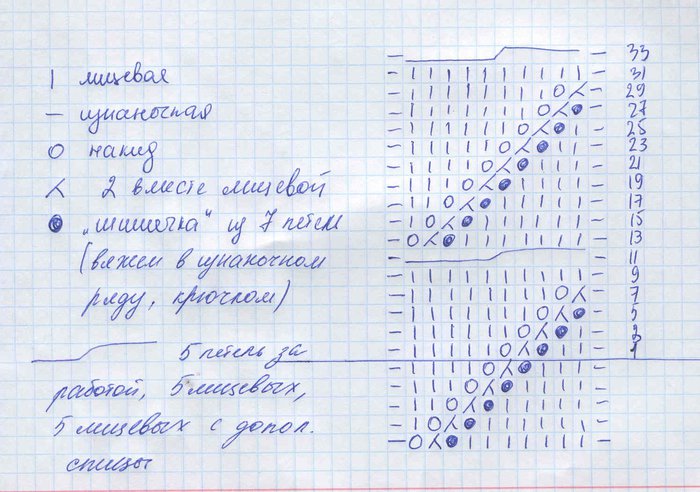 | лицевая
— изнаночная
O накид
⅄ 2 вместе лицевой
● „шишечка“ из 7 петель
(вяжем в изнаночном
ряду, крючком)
5 петель за
работой, 5 лицевых,
5 лицевых с допол.
спицы
33
31
29
27
25
23
21
19
17
15
13
11
9
7
5
3
1